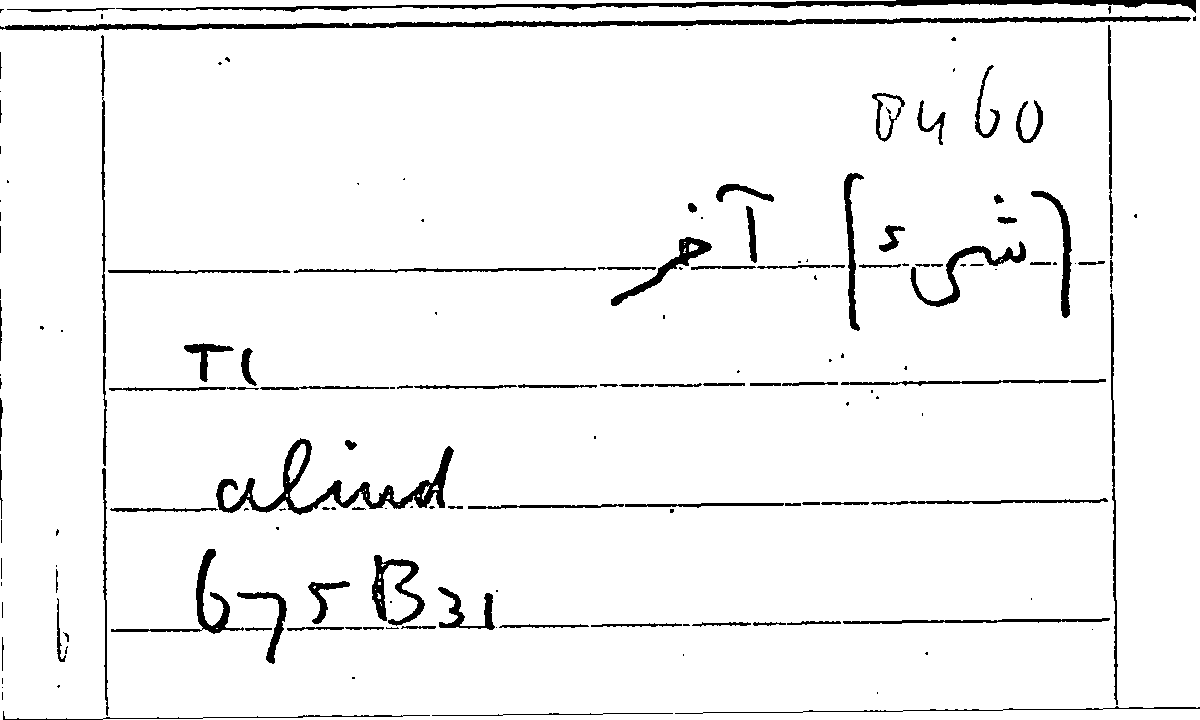 0460
[شيء] آخر
T1
aliud
675B31